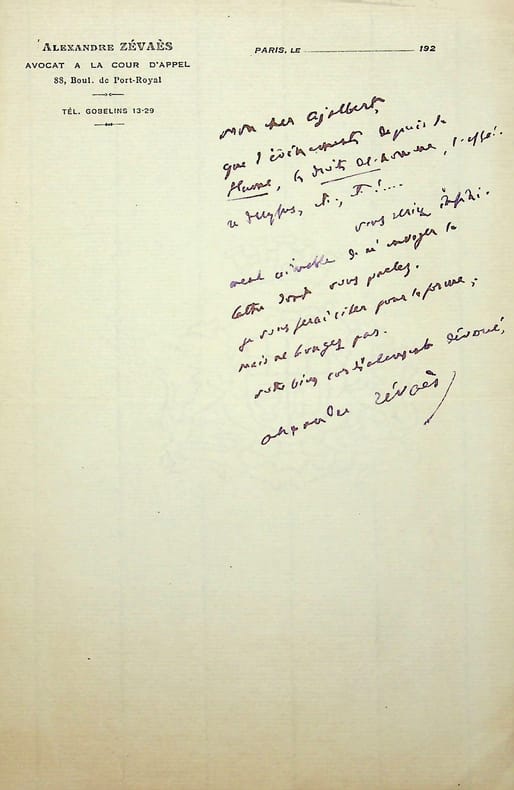 ALEXANDRE ZÉVAÈS
AVOCAT A LA COUR D'APPEL
88, Boul. de Port-Royal
TÉL. GOBELINS 13-29
PARIS, LE 192
mon cher Ajalbert,
que d'évènements depuis la
Plume, les droits de l'homme, l'affai-
re Dreyfus, etc., etc !....
vous seriez infini-
ment aimable de m'envoyer la
lettre dont vous parlez.
je vous ferai citer pour la forme ;
mais ne bougez pas.
votre bien cordialement dévoué,
alexandre Zévaès